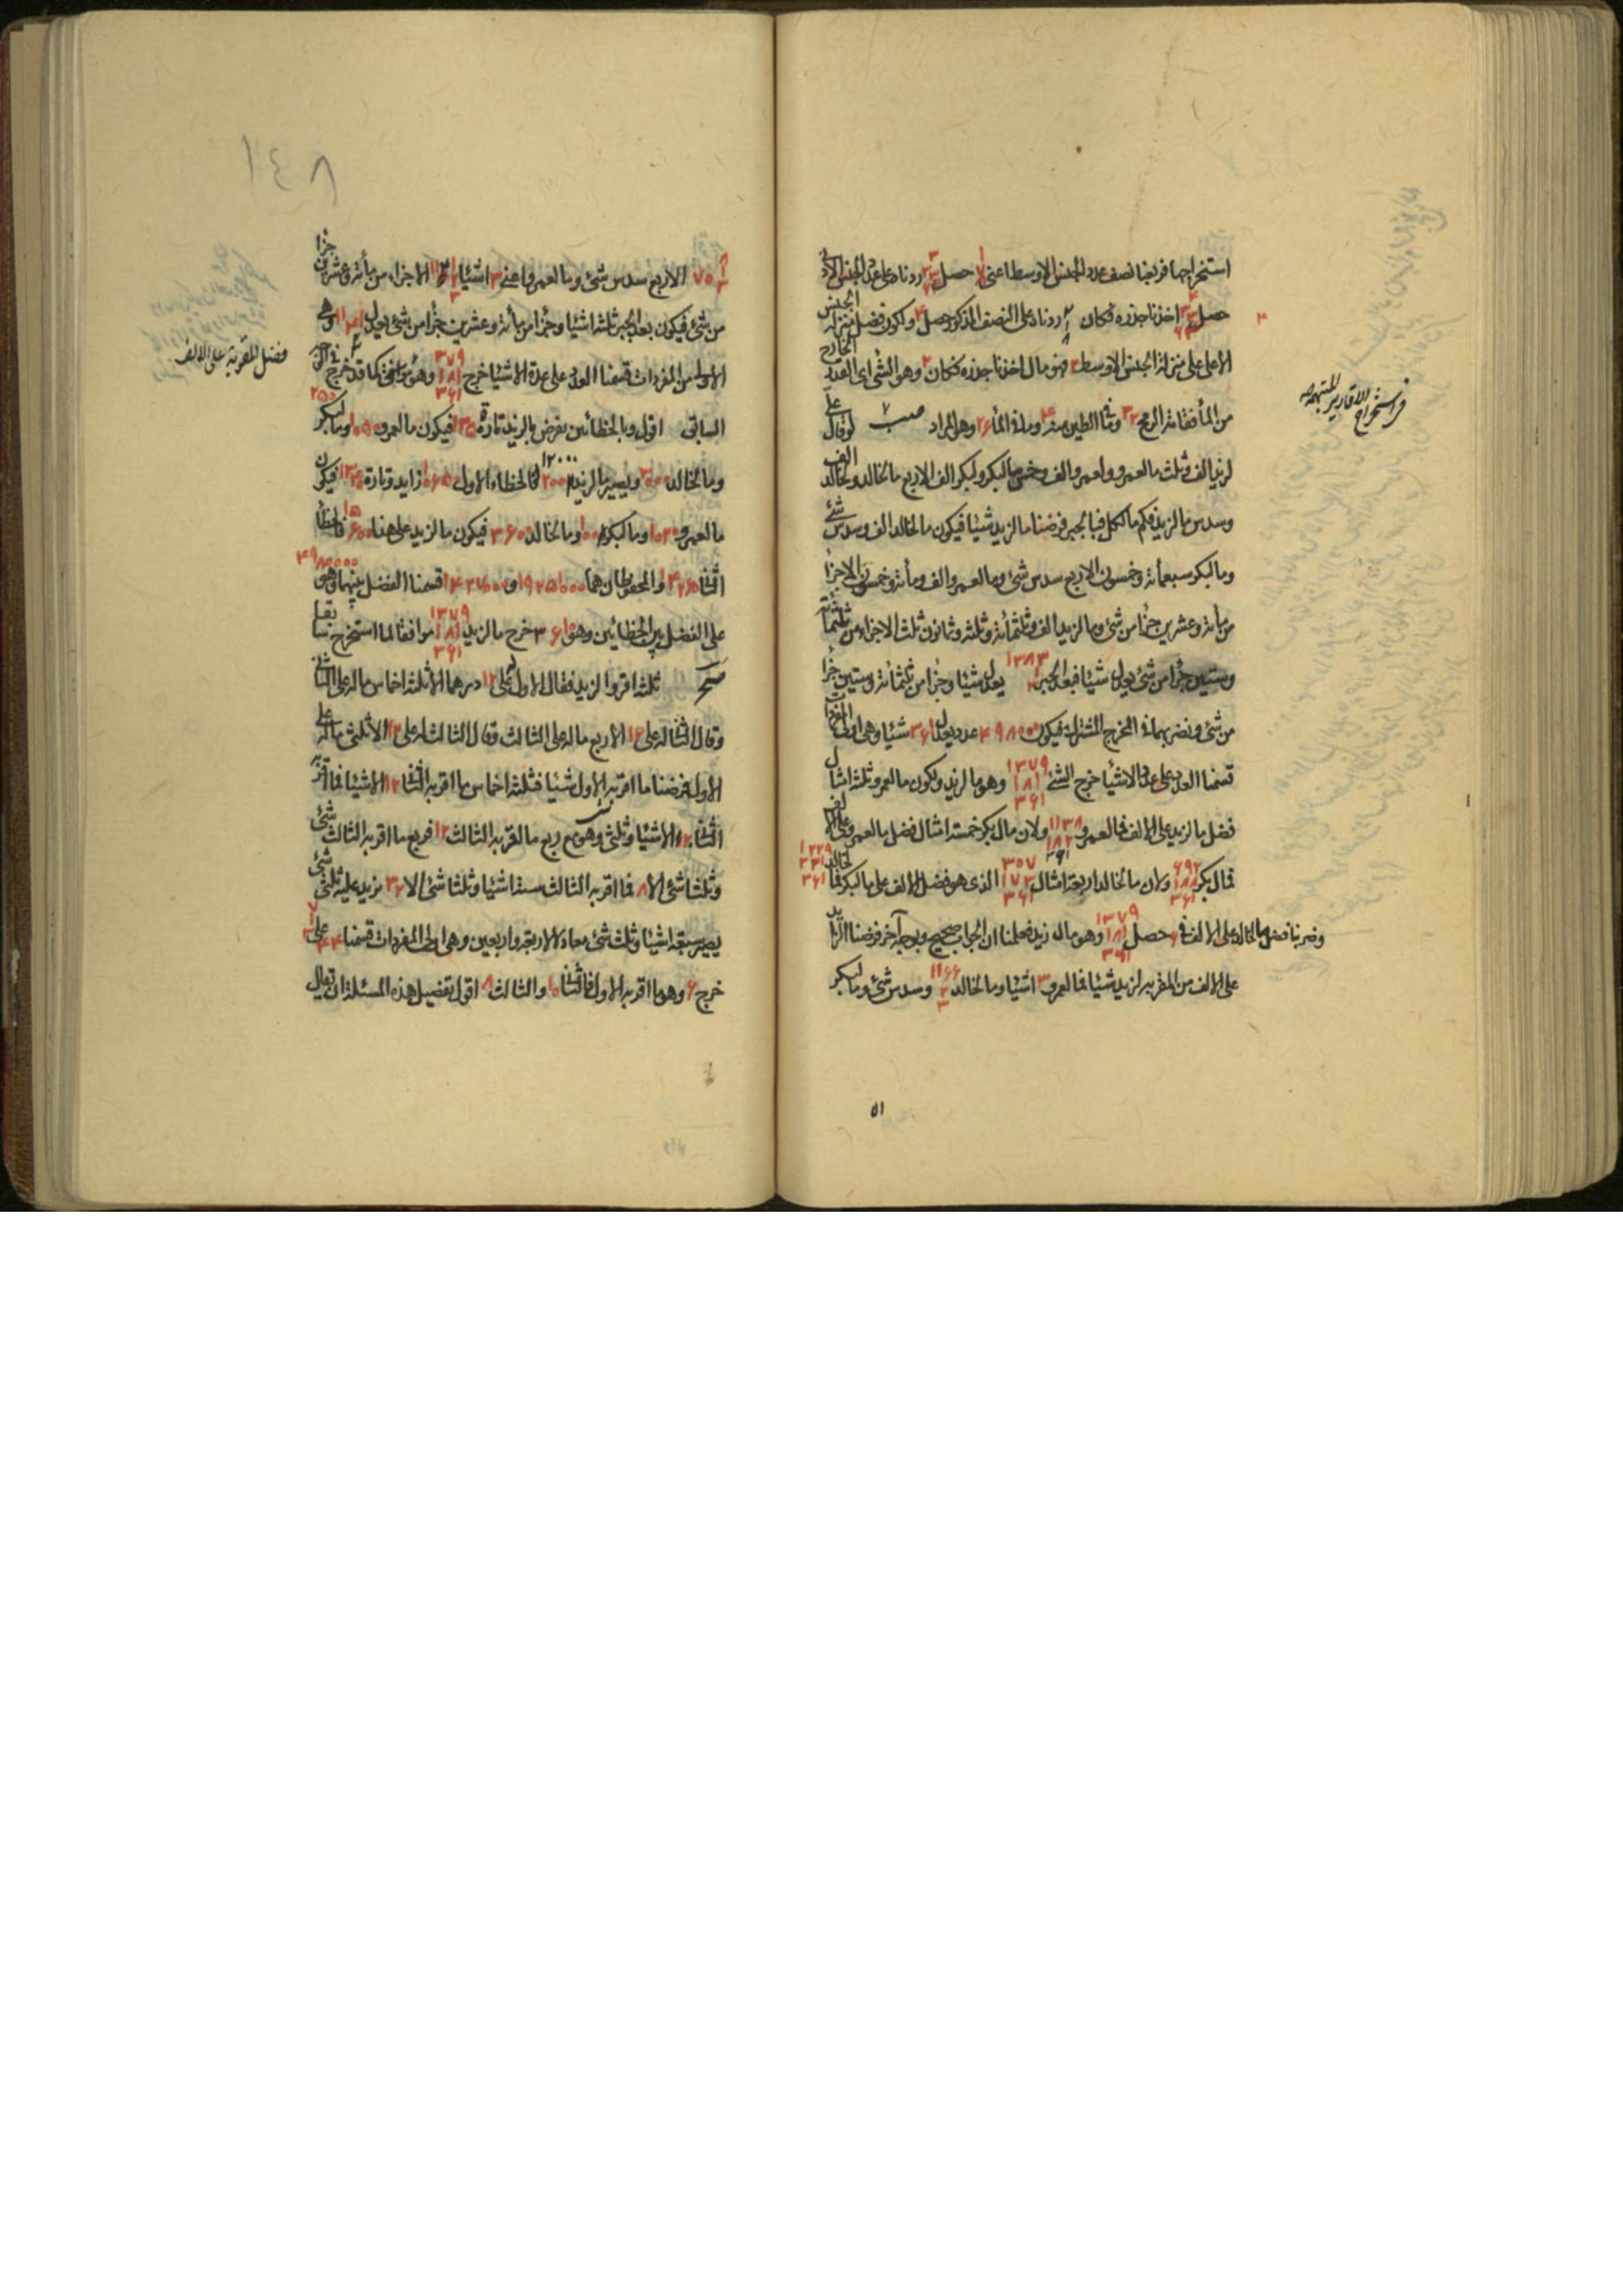 استخراجها فربعنا نصف عدد الجنس الاوسط اعنى حصل زدناه على عدد الجنس الاد
حصل اخذنا جذره فكان زدناه على النصف المذكور حصل ولكون فضل منزلة الجنس
الاعلى على منزلة الجنس الاوسط ٢ فهو مال اخذنا جذره فكان ٢ وهو الشئ اى القدر الخارج
من الماء فقامة الرمح ٣٢ وفى الطين منه وما فى الماء ٢۶ وهو المراد لو قال على
لزيد الف وثلث ما لعمرو ولعمرو الف وخمس ما لبكر ولبكر الف الاربع ما لخالد ولخالد الف
وسدس ما لزيد فكم ما لكل فبالجبر فرضنا ما لزيد شيئا فيكون ما لخالد الف وسدس شئ
وما لبكر سبعمائة وخمسون الاربع سدس شئ وما لعمرو الف ومائة وخمسون الاجزأ
من مائة وعشرين جزأ من شئ وما لزيد الف وثلثمائة وثلثة وثمانون وثلث الاجزاء من ثلثمائة
وستين جزأ من شئ يعدل شيئا فبعد الجبر ١٣٨٣ يعدل شيئا وجزأ من ثلثمائة وستين جزأ
من شئ ونضربهما فى المخرج المشترك فيكون ۴٩٨٠٠٠ عدد يعدل ٣۶١ شيئا وهى اولى المفردات
قسمنا العدد على عدة الاشيأ خرج الشئ ١٣٧٩ ١٨١ ٣۶١ وهو ما لزيد ولكون ما لعمرو ثلثة امثال
فضل ما لزيد على الالف فما لعمرو ١١٣٨ ١٨٢ ٣۶١ ولان مال بكر خمسة امثال فضل ما لعمرو على الالف
فما لبكر ۶٩٢ ١٨٨ ٣۶١ ولان ما لخالد اربعة امثال ٣٠٧ ١٧٣ ٣۶١ الذى هو فضل الالف على ما لبكر فما لخالد ١٢٢٩ ٣٣١ ٣۶١
وضربنا فضل ما لخالد على الالف فى ۶ حصل ١٣٧٩ ١٨١ ٣۶١ وهو مال زيد فعلمنا ان الجواب صحيح وبوجه آخر فرضنا الزايد
على الالف من المقر به لزيد شيئا فما لعمرو ٣ اشيأ وما لخالد ١١۶۶ ٢ ٣ وسدس شئ وما لبكر
فى استخراج الاقارير المتبهمة
٥١
١٤٨
الاربع سدس شئ وما لعمرو اعنى ٣ اشيأ الاجزاء من مائة وعشرين جزأ
من شئ فيكون بعد الجبر ثلثة اشيأ وجزأ من مائة وعشرين جزأ من شئ يعدل وهى
الاولى من المفردات قسمنا العدد على عدة الاشيأ خرج ٣٧٩ ١٨١ ٣۶١ وهو كما قد خرج فى
السابق اقول وبالخطائين نفرض ما لزيد تارة ١٣٥٠ فيكون ما لعمرو ١٠٥٠ وما لبكر ٢٥٠
وما لخالد ٣٠٠٠ ويصير ما لزيد ١٢٠٠٠ فالخطاء الاول ١٠۶٥٠ زايد وتارة فيكون
ما لعمرو ١٠٢٠ وما لبكر ١٠٠ وما لخالد ٣۶٠٠ فيكون ما لزيد على هذا ١٥۶٠٠ فالخطأ
الثانى والمحفوظان هما قسمنا الفضل بينهما وهو ۴٩٨٠٠٠٠
على الفضل بين الخطائين وهو ٣۶١٠ خرج ما لزيد ١٣٧٩ ١٨١ ٣۶١ موافقا لما استخرج سابقا
ثلثة اقروا لزيد فقال الاول له على ١٢ درهما الا ثلثة اخماس ماله على الثانى
وقال الثانى له على ١٢ الاربع ماله على الثالث وقال الثالث له على ١٢ الا ثلثى ماله على
الاول فرضنا ما اقر به الاول شيئا فثلثة اخماس ما اقر به الثانى ١٢ الا شيئا فما اقر به
الثانى ٢٠ الا شيئا وثلثى وهو مع ربع ما اقر به الثالث ١٢ فربع ما اقر به الثالث شئ
وثلثا شئ الا ٨ فما اقر به الثالث ستة اشيأ وثلثا شئ الا ٣٢ نزيد عليه ثلثى شئ
يصير سبعة اشيأ وثلث شئ معادلا لاربعة واربعين وهى اولى المفردات قسمنا ۴۴ على
خرج ۶ وهو ما اقر به الاول فالثانى ١٠ والثالث ٨ اقول تفصيل هذه المسئلة ان تعال
فضل المقر به على الالف